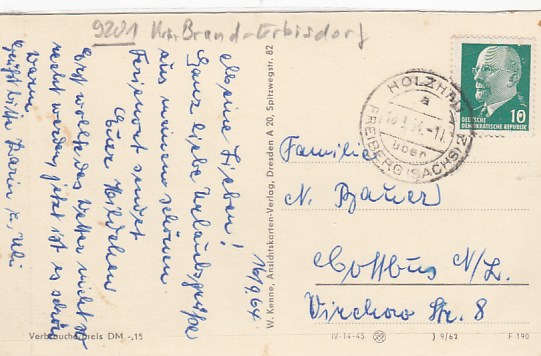 9201 Krs. Brand-Erbisdorf
16/9.64
Meine Lieben!
Ganz liebe Urlaubsgrüße
aus meinem schönen
Ferienort sendet
Euer
Erst wollte das Wetter nicht so
recht werden, jetzt ist es schön
warm.
Grüßt bitte Karin u. Uli
W. Kenne, Ansichtskarten-Verlag, Dresden A 20, Spitzwegstr. 82
HOLZHAU
a
über
FREIBERG (SACHS) 2
10
DEUTSCHE
DEMOKRATISCHE REPUBLIK
Familie
N. Bauer
Cottbus N/L.
Virchow Str. 8
Verbraucherpreis DM -,15
IV-14-45
J 9/62
F 190